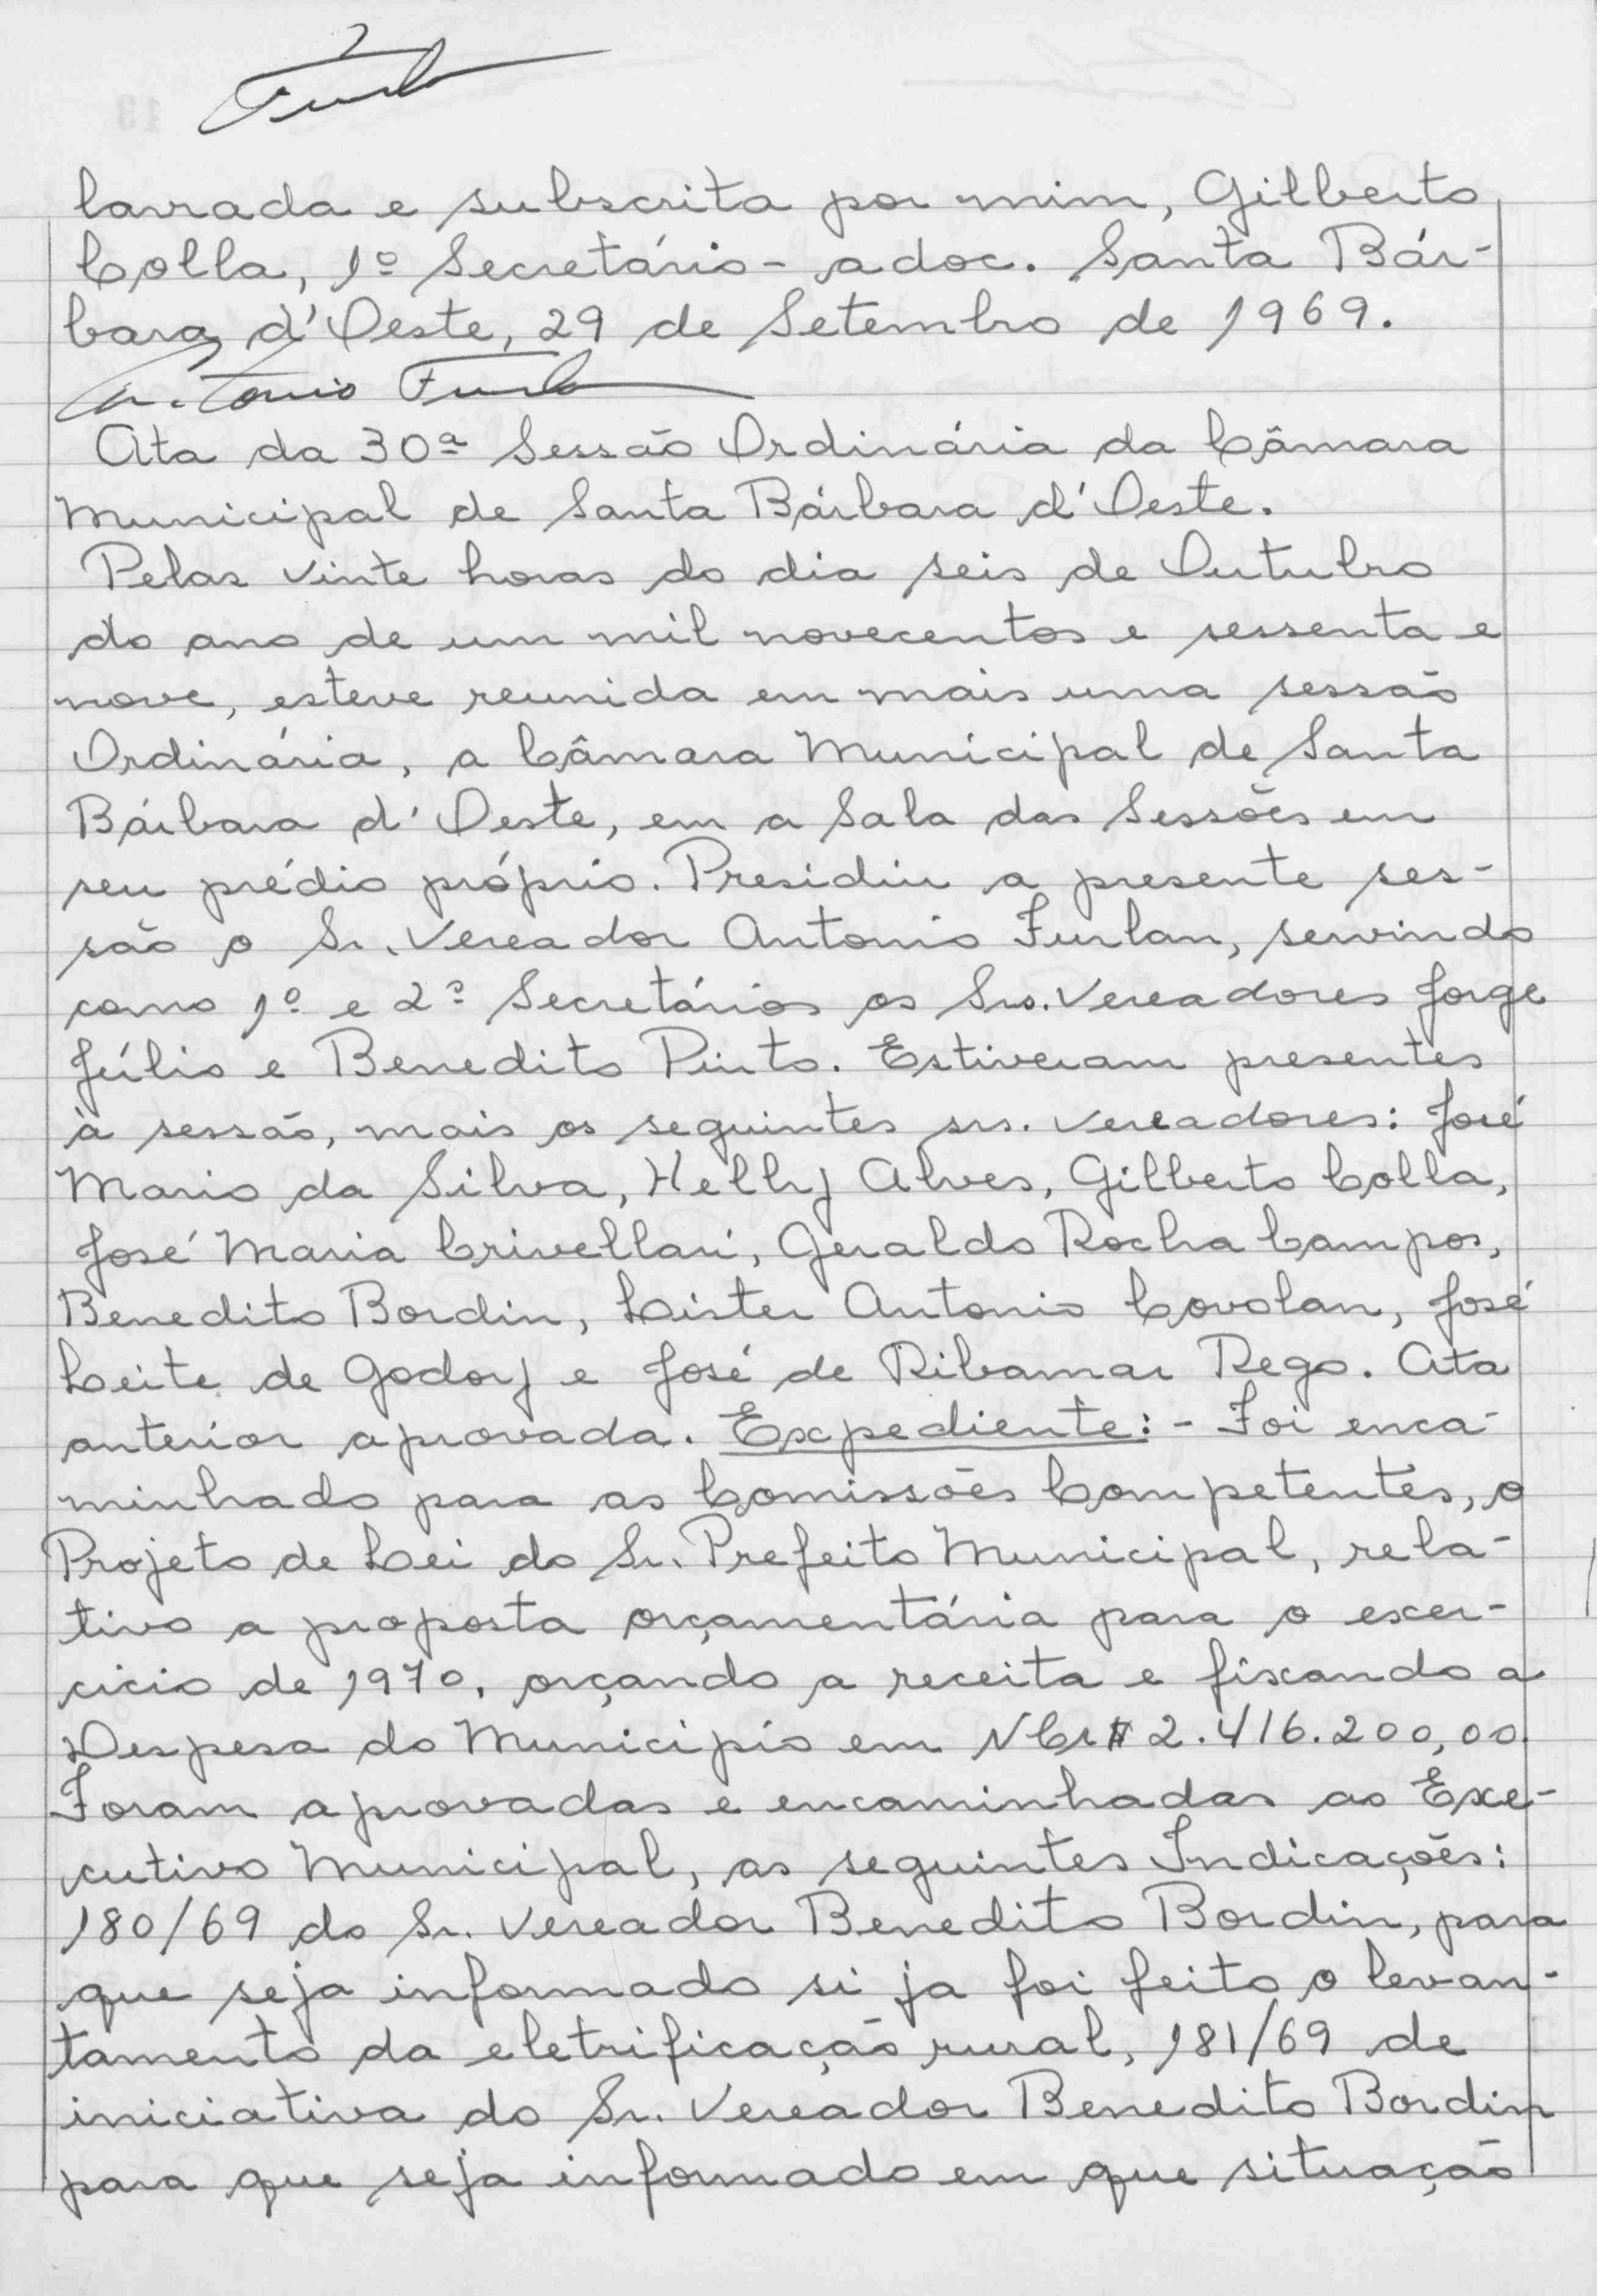 Furlan
lavrada e subscrita por mim, Gilberto
Colla, 1º Secretário - adoc. Santa Bár-
bara d'Oeste, 29 de Setembro de 1969.
Antonio Furlan
Ata da 30ª Sessão Ordinária da Câmara
Municipal de Santa Bárbara d'Oeste.
Pelas vinte horas do dia seis de Outubro
do ano de um mil novecentos e sessenta e
nove, esteve reunida em mais uma sessão
Ordinária, a Câmara Municipal de Santa
Bárbara d'Oeste, em a Sala das Sessões em
seu prédio próprio. Presidiu a presente ses-
são o Sr. Vereador Antonio Furlan, servindo
como 1º e 2º Secretários os Srs. Vereadores Jorge
Júlio e Benedito Pinto. Estiveram presentes
à sessão, mais os seguintes srs. vereadores: José
Mario da Silva, Hellhj Alves, Gilberto Colla,
José Maria Crivellari, Geraldo Rocha Campos,
Benedito Bordin, Lister Antonio Covolan, José
Leite de Godoy e José de Ribamar Rego. Ata
anterior aprovada. Expediente: - Foi enca-
minhado para as Comissões Competentes, o
Projeto de Lei do Sr. Prefeito Municipal, rela-
tivo a proposta orçamentária para o exer-
cicio de 1970, orçando a receita e fixando a
Despesa do Municipio em NCr$ 2.416.200,00.
Foram aprovadas e encaminhadas ao Exe-
cutivo Municipal, as seguintes Indicações:
180/69 do Sr. Vereador Benedito Bordin, para
que seja informado si ja foi feito o levan-
tamento da eletrificação rural, 181/69 de
iniciativa do Sr. Vereador Benedito Bordin
para que seja informado em que situação